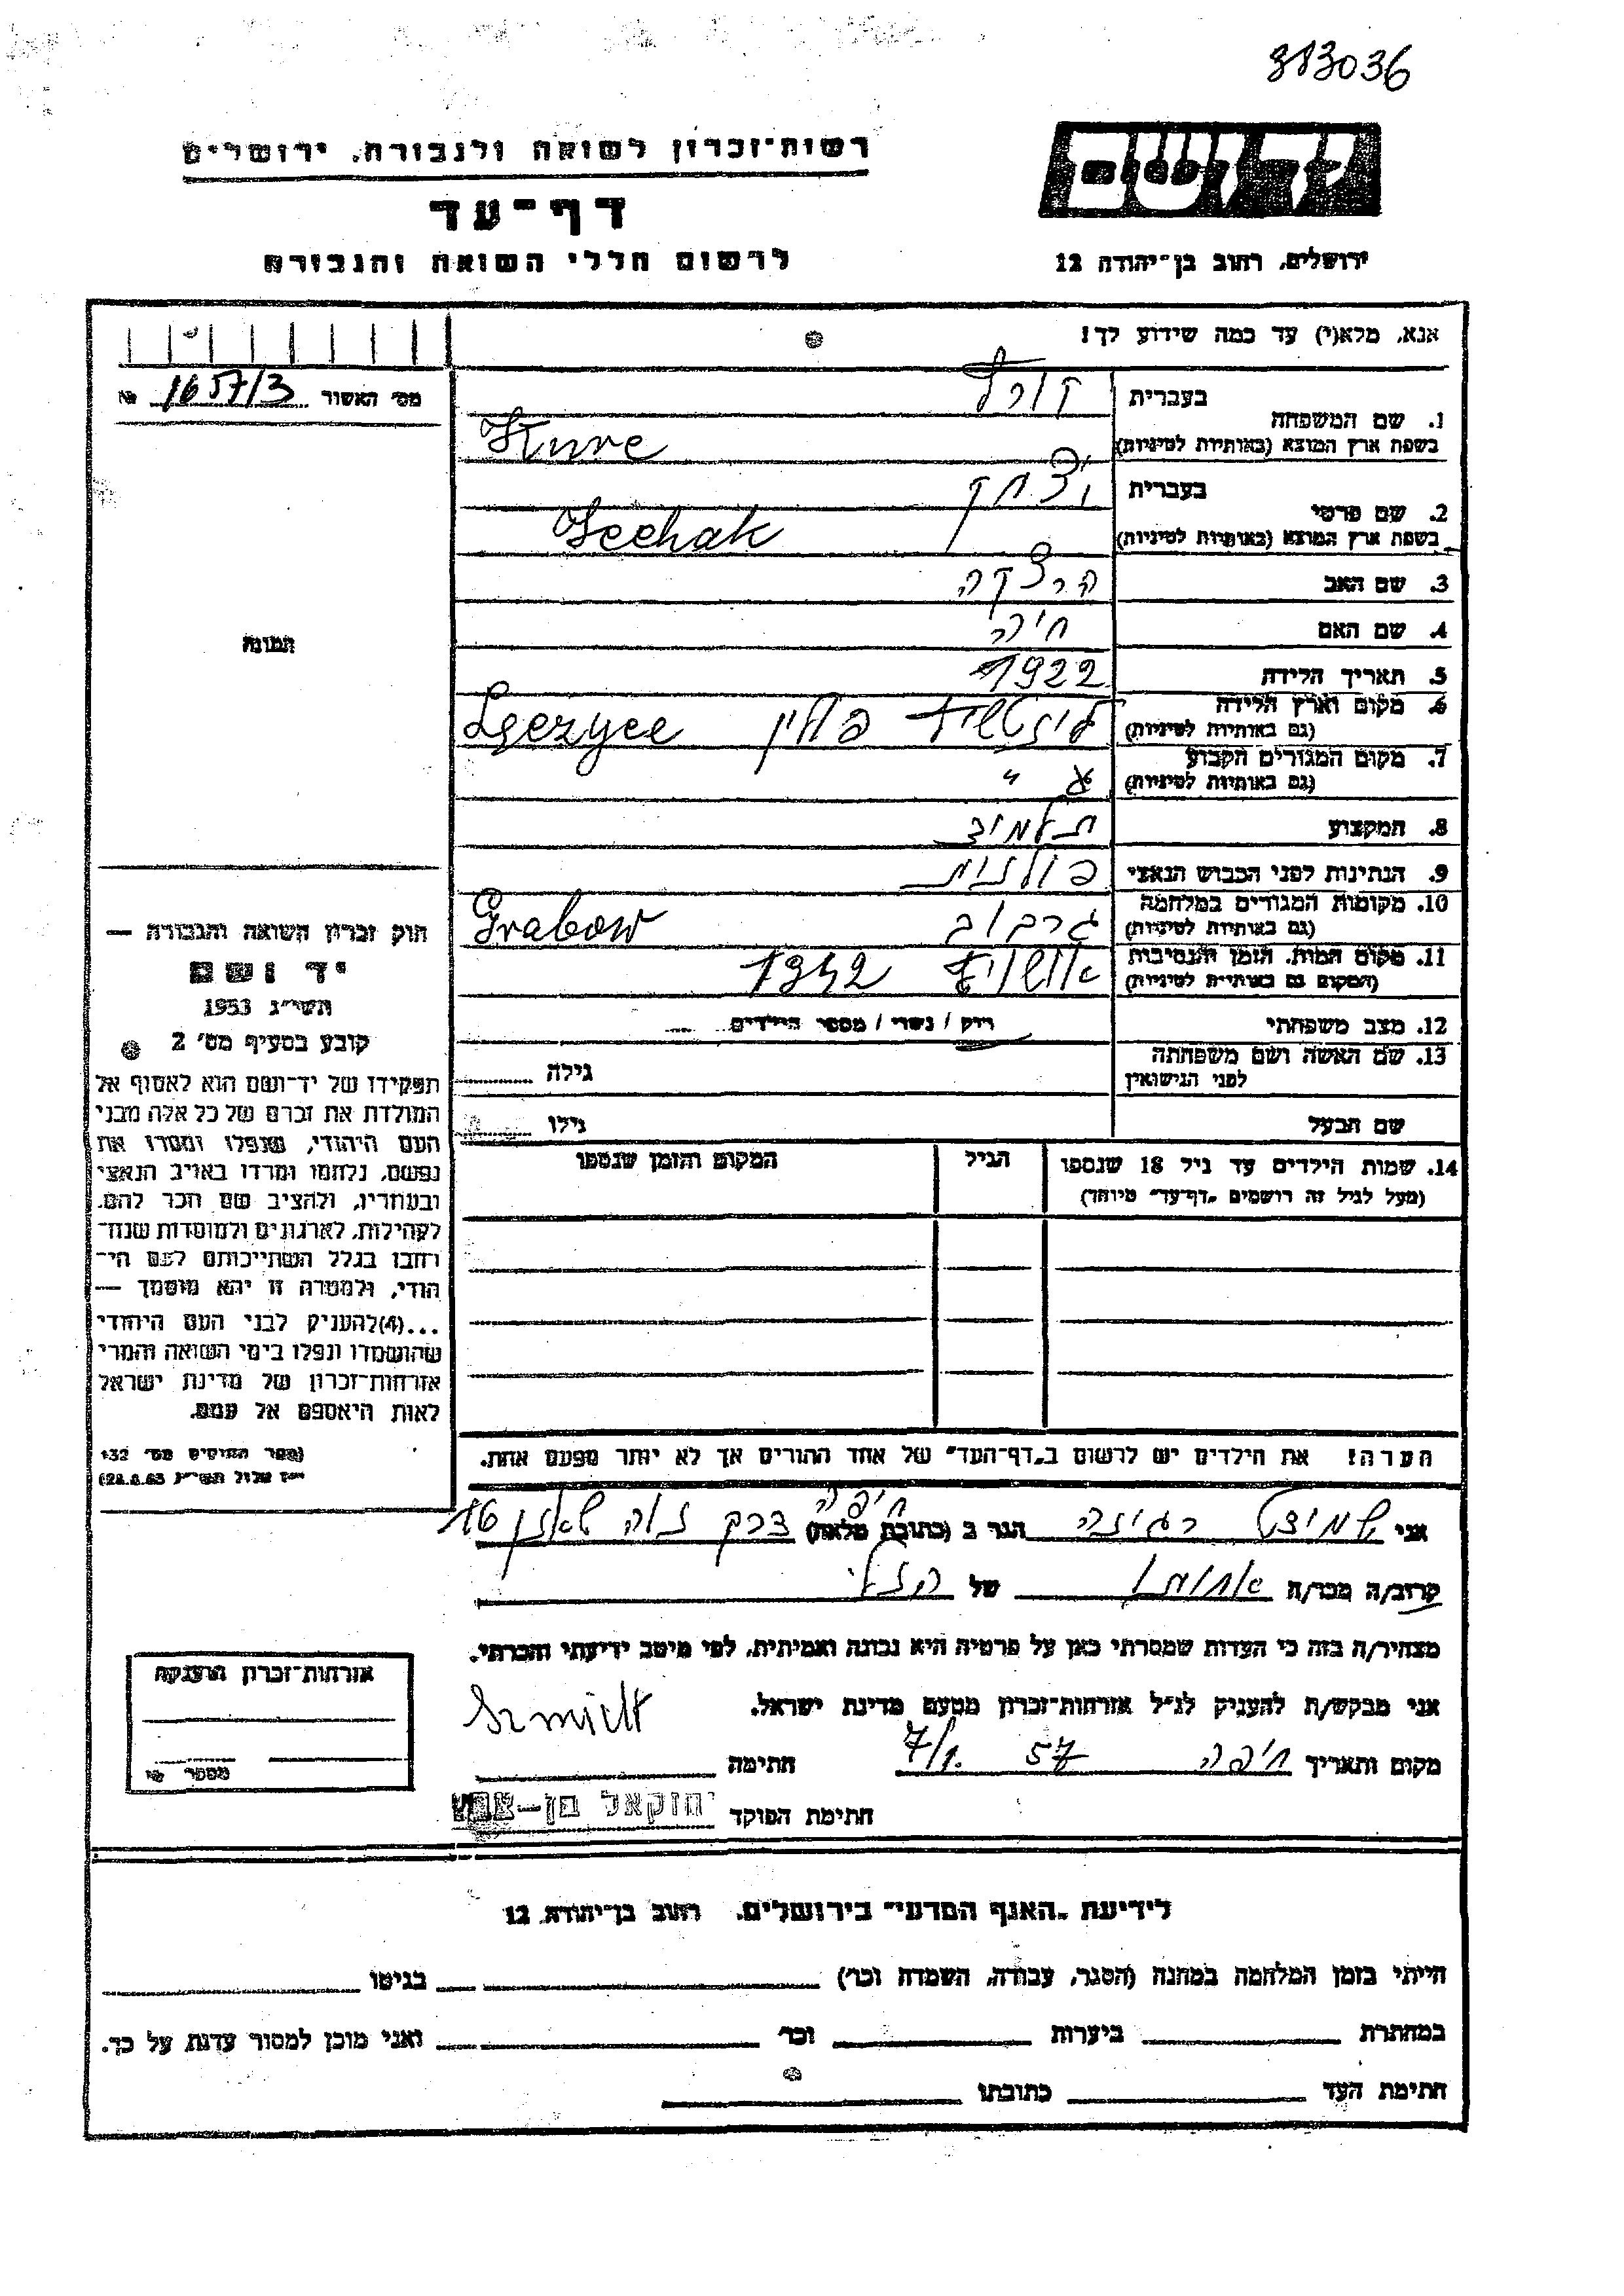 313036
רשות־זכרון לשואה ולגבורה, ירושלים
דף־עד
לרשום חללי השואה והגבורה
יד ושם
ירושלים, רחוב בן־יהודה 12
אנא, מלא(י) עד כמה שידוע לך!
מס׳ האשור 1657/3 №
1. שם המשפחה
בעברית
בשפת ארץ המוצא (באותיות לטיניות)
2. שם פרטי
בעברית יצחק
בשפת ארץ המוצא (באותיות לטיניות) Icchak
3. שם האב
4. שם האם חיה
5. תאריך הלידה 1922
6. מקום וארץ הלידה
(גם באותיות לטיניות) פולין
7. מקום המגורים הקבוע
(גם באותיות לטיניות) "
8. המקצוע תלמיד
9. הנתינות לפני הכבוש הנאצי פולנית
10. מקומות המגורים במלחמה
(גם באותיות לטיניות) גרבוב Grabow
11. מקום המות, הזמן והנסיבות
(המקום גם באותיות לטיניות) אושויץ 1942
12. מצב משפחתי רוק / נשוי / מספר הילדים
13. שם האשה ושם משפחתה
לפני הנישואין גילה
שם הבעל גילו
14. שמות הילדים עד גיל 18 שנספו הגיל המקום והזמן שנספו
(מעל לגיל זה רושמים „דף־עד״ מיוחד)
תמונה
חוק זכרון השואה והגבורה —
יד ושם
תשי״ג 1953
קובע בסעיף מס׳ 2
תפקידו של יד־ושם הוא לאסוף אל
המולדת את זכרם של כל אלה מבני
העם היהודי, שנפלו ומסרו את
נפשם, נלחמו ומרדו באויב הנאצי
ובעוזריו, ולהציב שם וזכר להם,
לקהילות, לארגונים ולמוסדות שנח־
רבו בגלל השתייכותם לעם הי־
הודי, ולמטרה זו יהא מוסמך —
...(4)להעניק לבני העם היהודי
שהושמדו ונפלו בימי השואה והמרי
אזרחות־זכרון של מדינת ישראל
לאות היאספם אל עמם.
(ספר החוקים מס׳ 132
י״ז אלול תשי״ג 28.8.53)
הערה! את הילדים יש לרשום ב„דף־העד״ של אחד ההורים אך לא יותר מפעם אחת.
אני שמידט רגינה הגר ב (כתובת מלאה) חיפה דרך נוה שאנן 16
קרוב/ה מכר/ה אחותו של הנ״ל
מצהיר/ה בזה כי העדות שמסרתי כאן על פרטיה היא נכונה ואמיתית, לפי מיטב ידיעתי והכרתי.
אני מבקש/ת להעניק לנ״ל אזרחות־זכרון מטעם מדינת ישראל.
מקום ותאריך חיפה 7/1. 57 חתימה Szmidt
חתימת הפוקד יחזקאל בן־
אזרחות־זכרון הוענקה
מספר
לידיעת „האגף המדעי״ בירושלים, רחוב בן־יהודה 12
הייתי בזמן המלחמה במחנה (הסגר, עבודה, השמדה וכו׳) בגיטו
במחתרת ביערות וכו׳ ואני מוכן למסור עדות על כך.
חתימת העד כתובתו